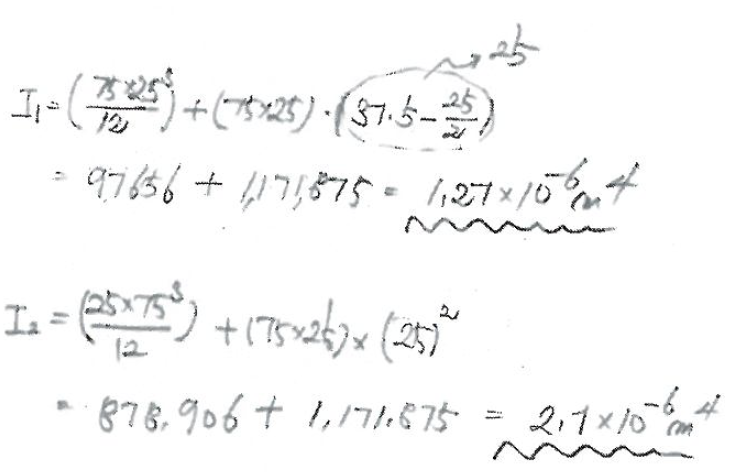 → 25
I₁ = (75×25³/12) + (75×25) · (37.5 - 25/2)
= 97656 + 1,171,875 = 1.27×10⁻⁶ m⁴
I₂ = (25×75³/12) + (75×25) × (25)²
= 878.906 + 1,171.875 = 2.1×10⁻⁶ m⁴